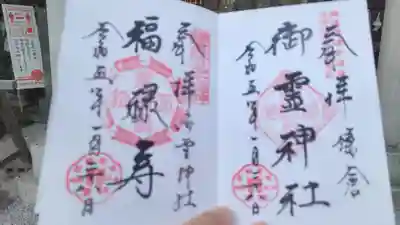 奉拝 鎌倉
御霊神社
令和五年一月二十八日
奉拝 御霊神社
福禄寿
令和五年一月二十八日